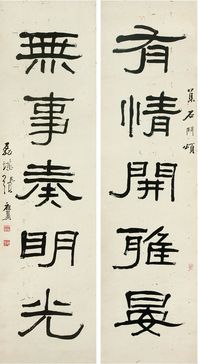 有情開雅晏
集石門頌
無事奏明光